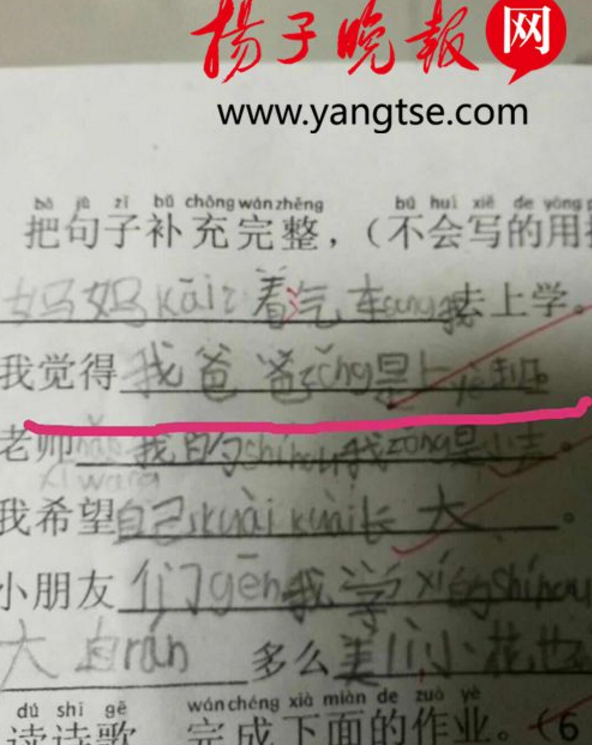 扬子晚报网
www.yangtse.com
bǎ jù zǐ bǔ chōng wán zhěng bú huì xiě de yòng p
把句子补充完整，（不会写的用拼
妈妈kāi 着汽车sòng我去上学。
我觉得我爸爸zǒng是上
老师 我的shíhou我zǒng是
xī wàng
我希望自己kuài kuài长大。
小朋友们gēn我学xí shíhou
大自rán 多么美lì,小花也
dú shī gē wán chéng xià miàn de zuò yè
读诗歌 完成下面的作业。（6